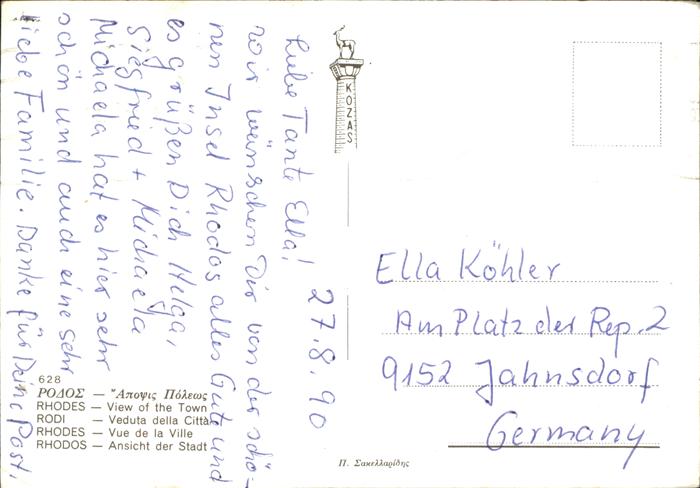 27.8.90
Liebe Tante Ella!
wir wünschen Dir von der schö-
nen Insel Rhodos alles Gute und
es grüßen Dich Helga,
Siegfried + Michaela
Michaela hat es hier sehr
schön und auch eine sehr
liebe Familie. Danke für Deine Post.
KOZAS
Ella Köhler
Am Platz der Rep. 2
9152 Jahnsdorf
Germany
628
ΡΟΔΟΣ — Ἄποψις Πόλεως
RHODES — View of the Town
RODI — Veduta della Città
RHODES — Vue de la Ville
RHODOS — Ansicht der Stadt
Π. Σακελλαρίδης